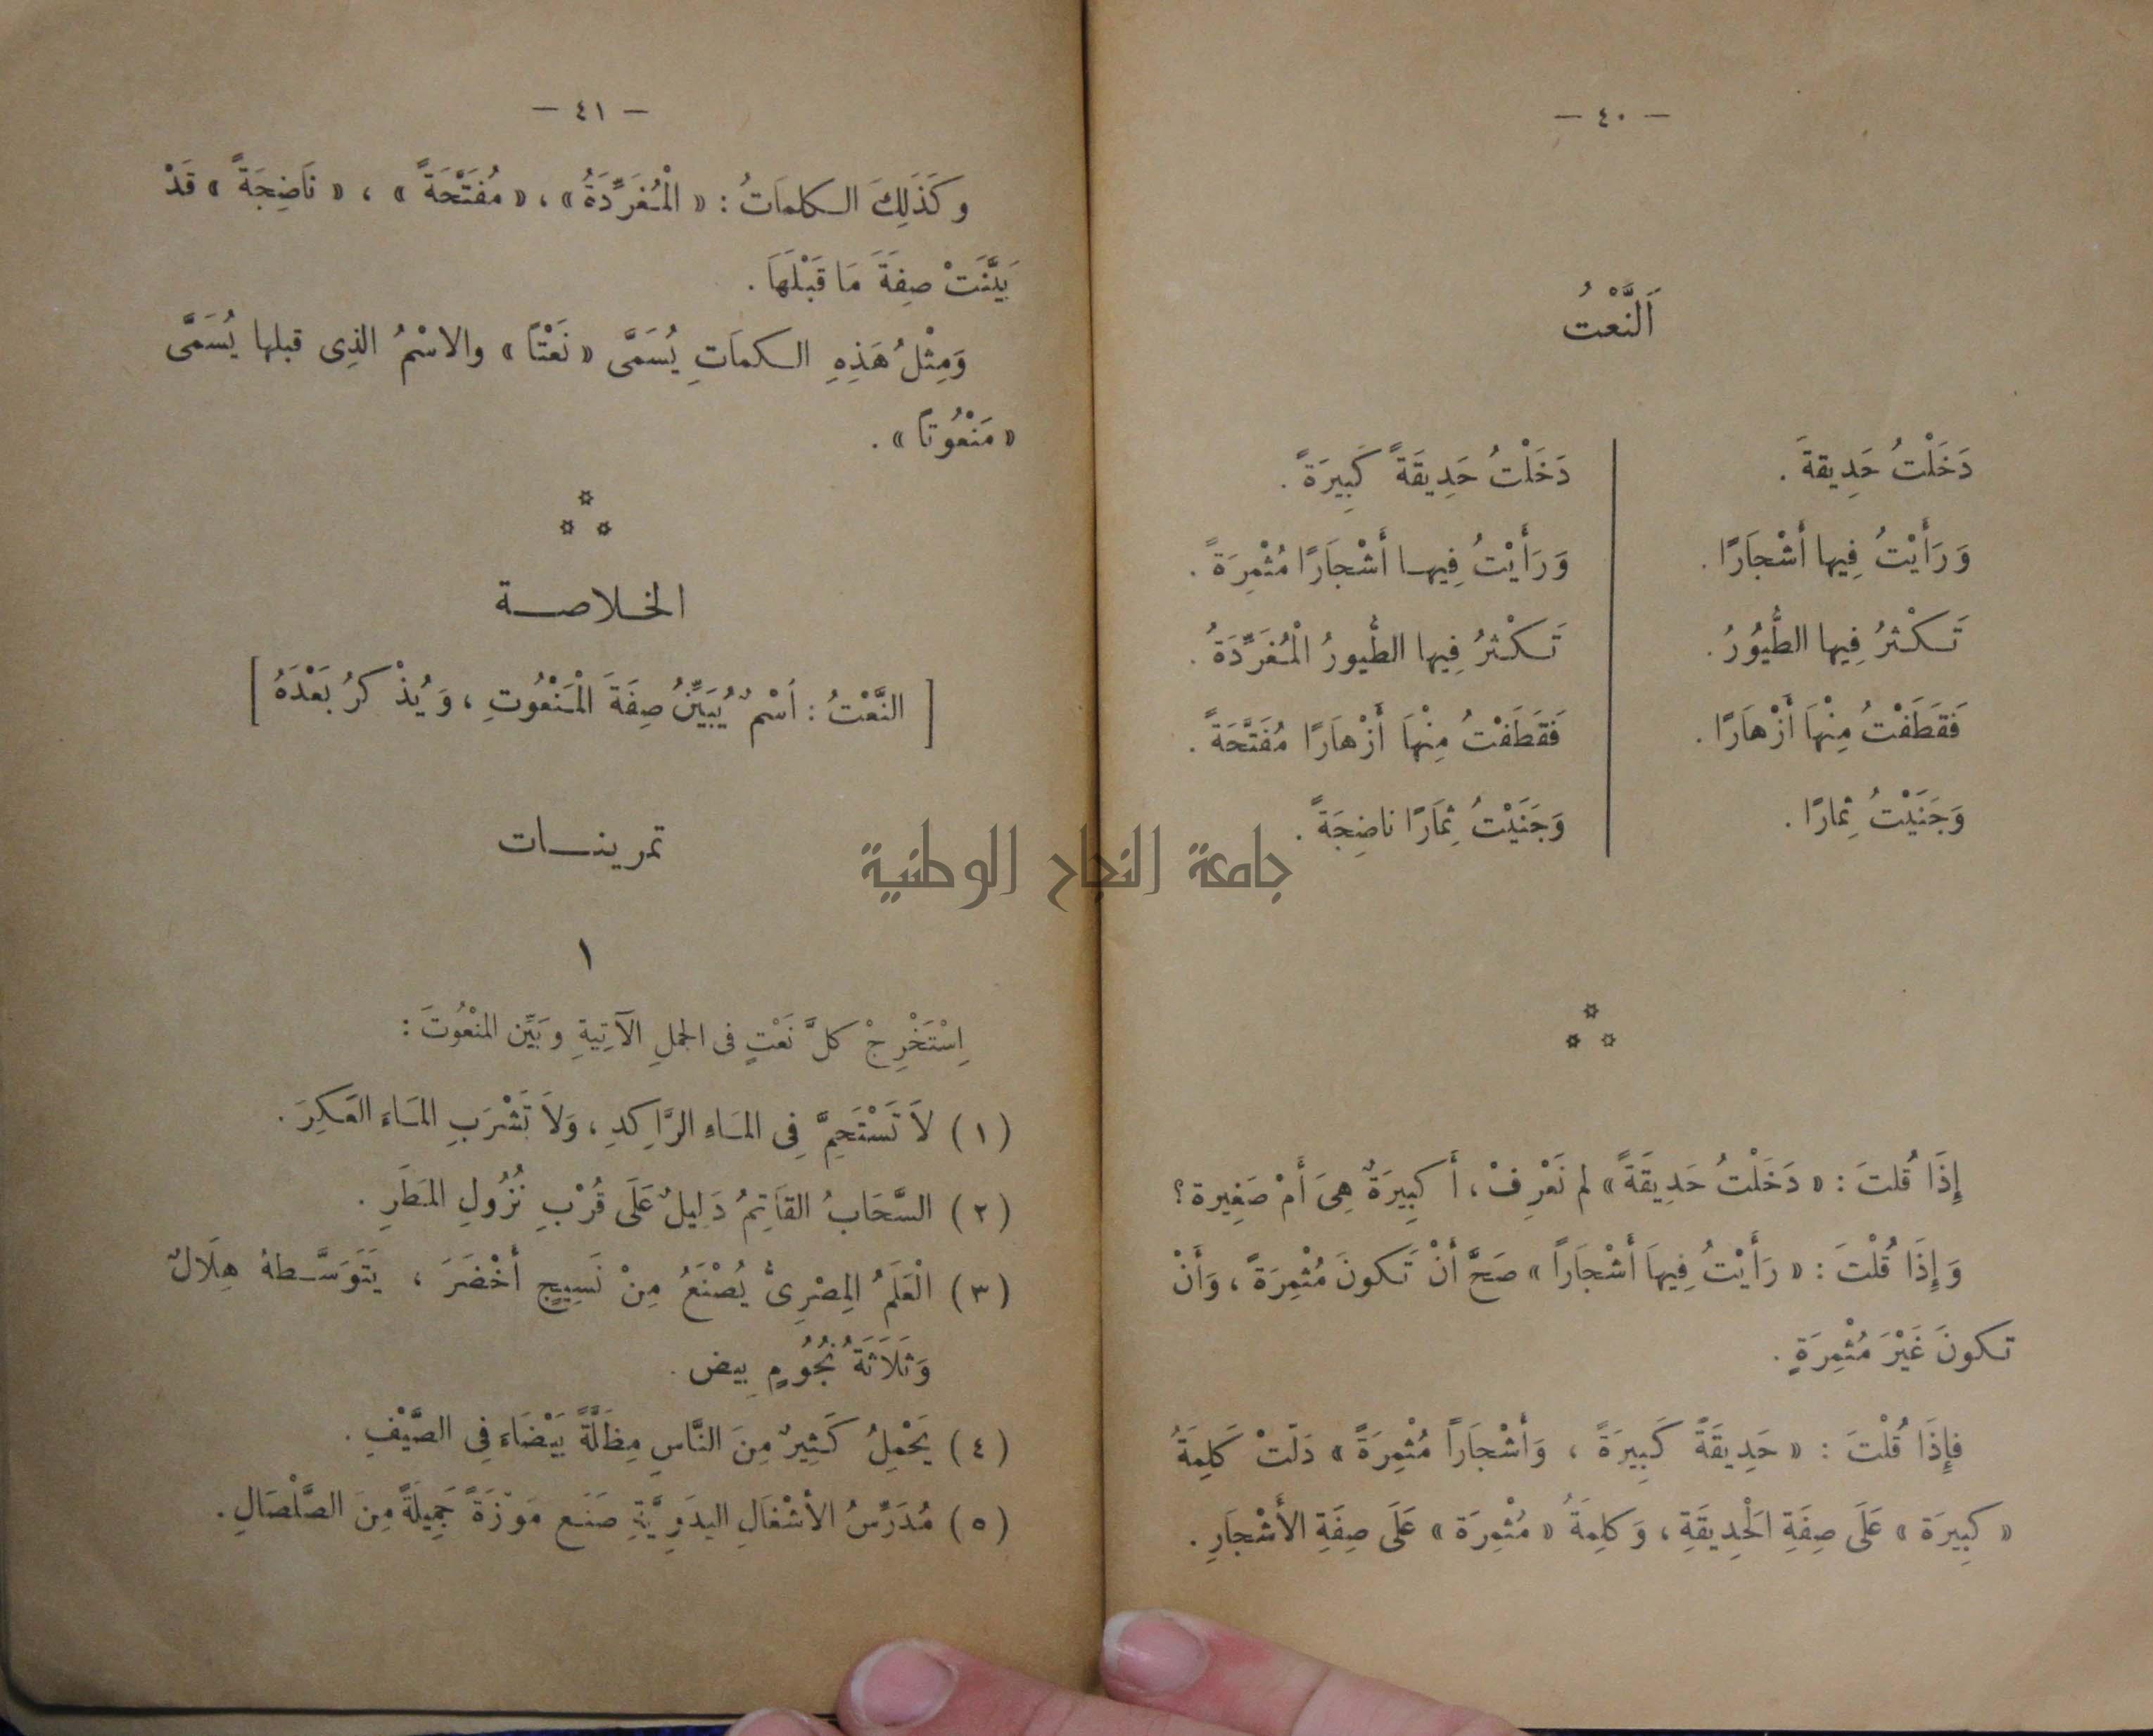 — ٤٠ —
اَلنَّعْتُ
دَخَلْتُ حَدِيقةَ .
وَرَأَيْتُ فِيها أَشْجَارًا .
تَكْثرُ فِيها الطُّيُوُرُ .
فَقَطَفْتُ مِنْهَا أَزْهَارًا .
وَجَنَيْتُ ثِمارًا .
دَخَلْتُ حَدِيقَةً كَبِيرَةً .
وَرَأَيْتُ فِيها أَشْجَارًا مُثْمِرَةً .
تَكْثرُ فِيها الطُّيورُ الْمُغَرِّدَةُ .
فَقَطَفْتُ مِنْهَا أَزْهَارًا مُفَتَّحَةً .
وَجَنَيْتُ ثِمَارًا ناضِجَةً .
إِذَا قُلتَ : « دَخَلْتُ حَدِيقَةً » لم نَعْرِفْ ، أَكبِيرَةٌ هِىَ أَمْ صَغِيرة ؟
وَإِذَا قُلْتَ : « رَأَيْتُ فِيهَا أَشْجَاراً » صَحَّ أَنْ تَكونَ مُثْمِرَةً ، وَأَنْ
تكونَ غَيْرَ مُثْمِرَةٍ .
فإِذَا قُلْتَ : « حَدِيقَةً كَبِيرَةً ، وَأَشْجَاراً مُثْمِرَةً » دَلّتْ كَلِمَةُ
« كبِيرَة » عَلَى صِفَةِ الْحَدِيقَةِ ، وَكلِمَةُ « مُثْمِرَة » عَلَى صِفَةِ الأَشْجَارِ .
— ٤١ —
وكَذَلِكَ الكلمَاتُ : « الْمُغَرِّدَةُ » ، « مُفَتَّحَةً » ، « نَاضِجَةً » قَدْ
بَيَّنَتْ صِفَةَ مَا قَبْلَهَا .
وَمِثْلُ هَذِهِ السكمَاتِ يُسَمَّى « نَعْتًا » والاسْمُ الذِى قبلها يُسَمَّى
« مَنْعُوتًا » .
الخلاصة
[ النَّعْتُ : اَسْمٌ يُبَيِّنُ صِفَةَ الْمَنْعُوتِ ، وَيُذْكرُ بَعْدَهُ ]
تمرينات
١
اِسْتَخْرِجْ كلَّ نَعْتٍ فى الجملِ الآتِيةِ وبَيِّن المنْعُوتَ :
(١) لاَ تَسْتَحِمَّ فِى المَاءِ الرَّاكِدِ ، وَلاَ تَشْرَبِ المَاءَ العَكِرَ .
(٢) السَّحَابُ القَاتِمُ دَلِيلٌ عَلَى قُرْبِ نُزُولِ المَطَرِ .
(٣) الْعَلَمُ المِصْرِىُّ يُصْنَعُ مِنْ نَسِيجٍ أَخْضَرَ ، يَتَوَسَّطهُ هِلَالٌ
وَثَلاَثَةُ نُجُوُمٍ بِيض .
(٤) يَحْمِلُ كَثِيرٌ مِنَ النَّاسِ مِظَلَّةً بَيْضَاءَ فِى الصَّيْفِ .
(٥) مُدَرِّسُ الأشْغَالِ اليدَوِيَّةِ صَنَع مَوْزَةً جَمِيلَةً مِنَ الصَّلْصَالِ .
جامعة النجاح الوطنية